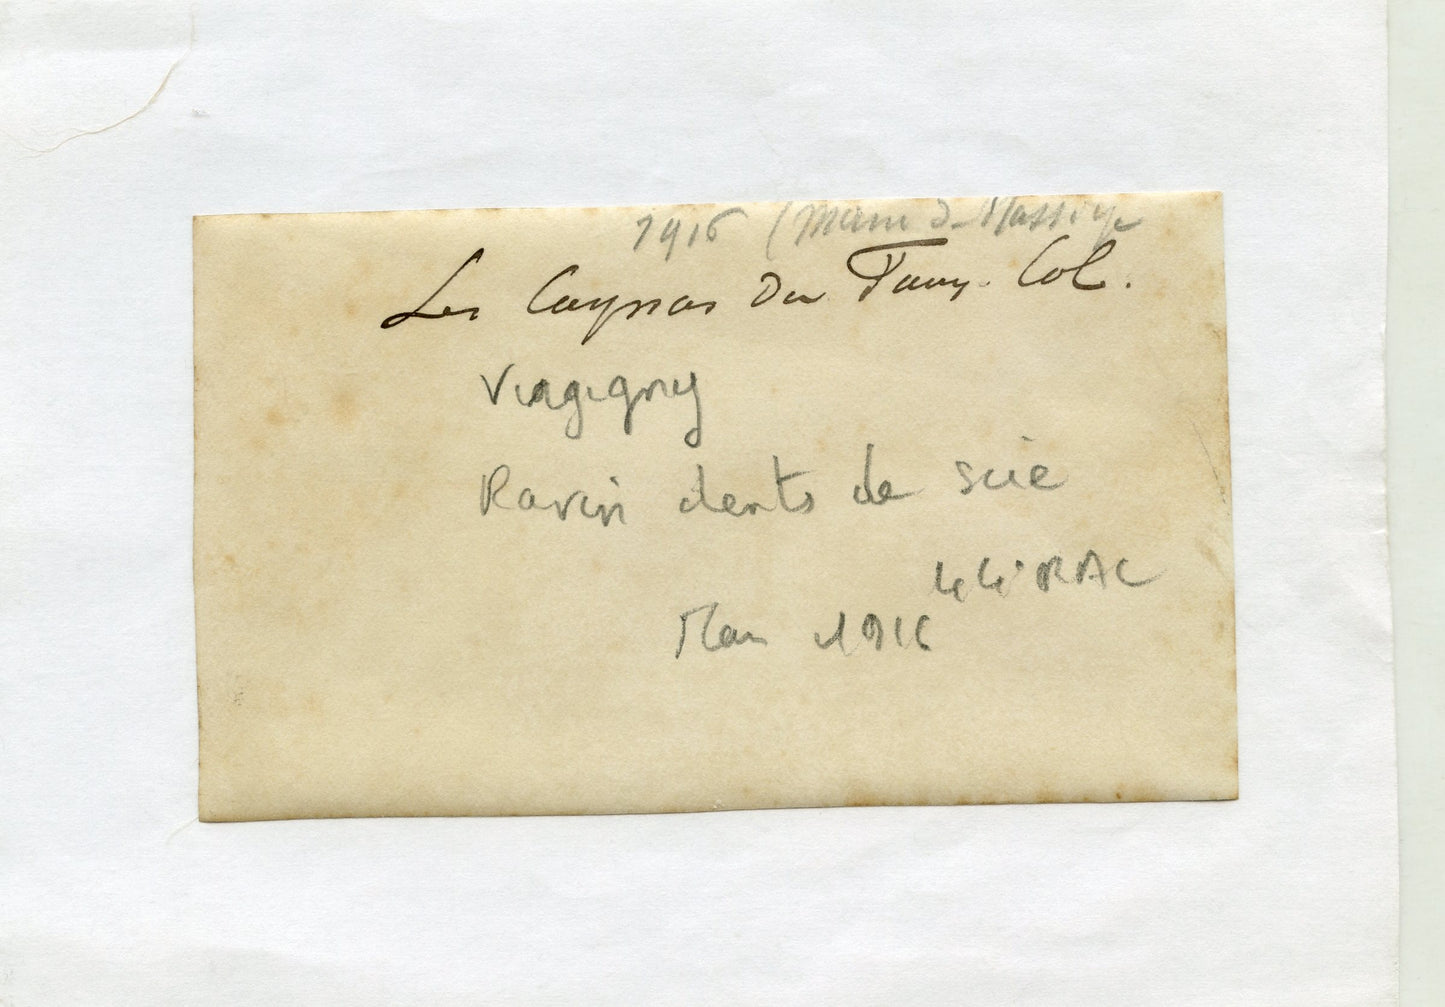 1916 (Main de Massiges
Les Cagnas Du Faux. Col.
Virgigny
Ravin dents de scie
44° RAC
Mars 1916